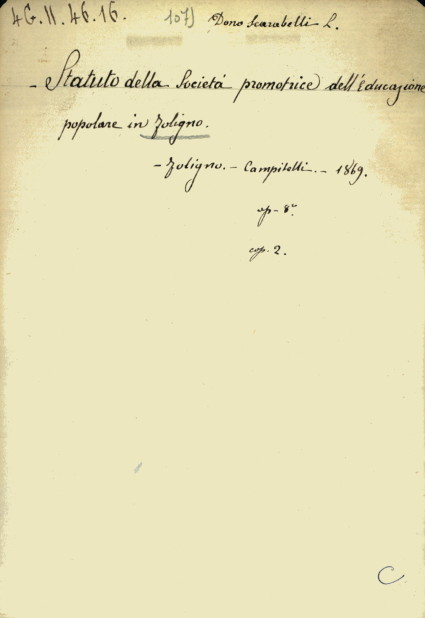 4G. II. 46. 16. 107) Dono Scarabelli L.
- Statuto della Società promotrice dell'Educazione
popolare in Foligno.
- Foligno. - Campitelli. - 1869.
op - 8°.
cop. 2.
C